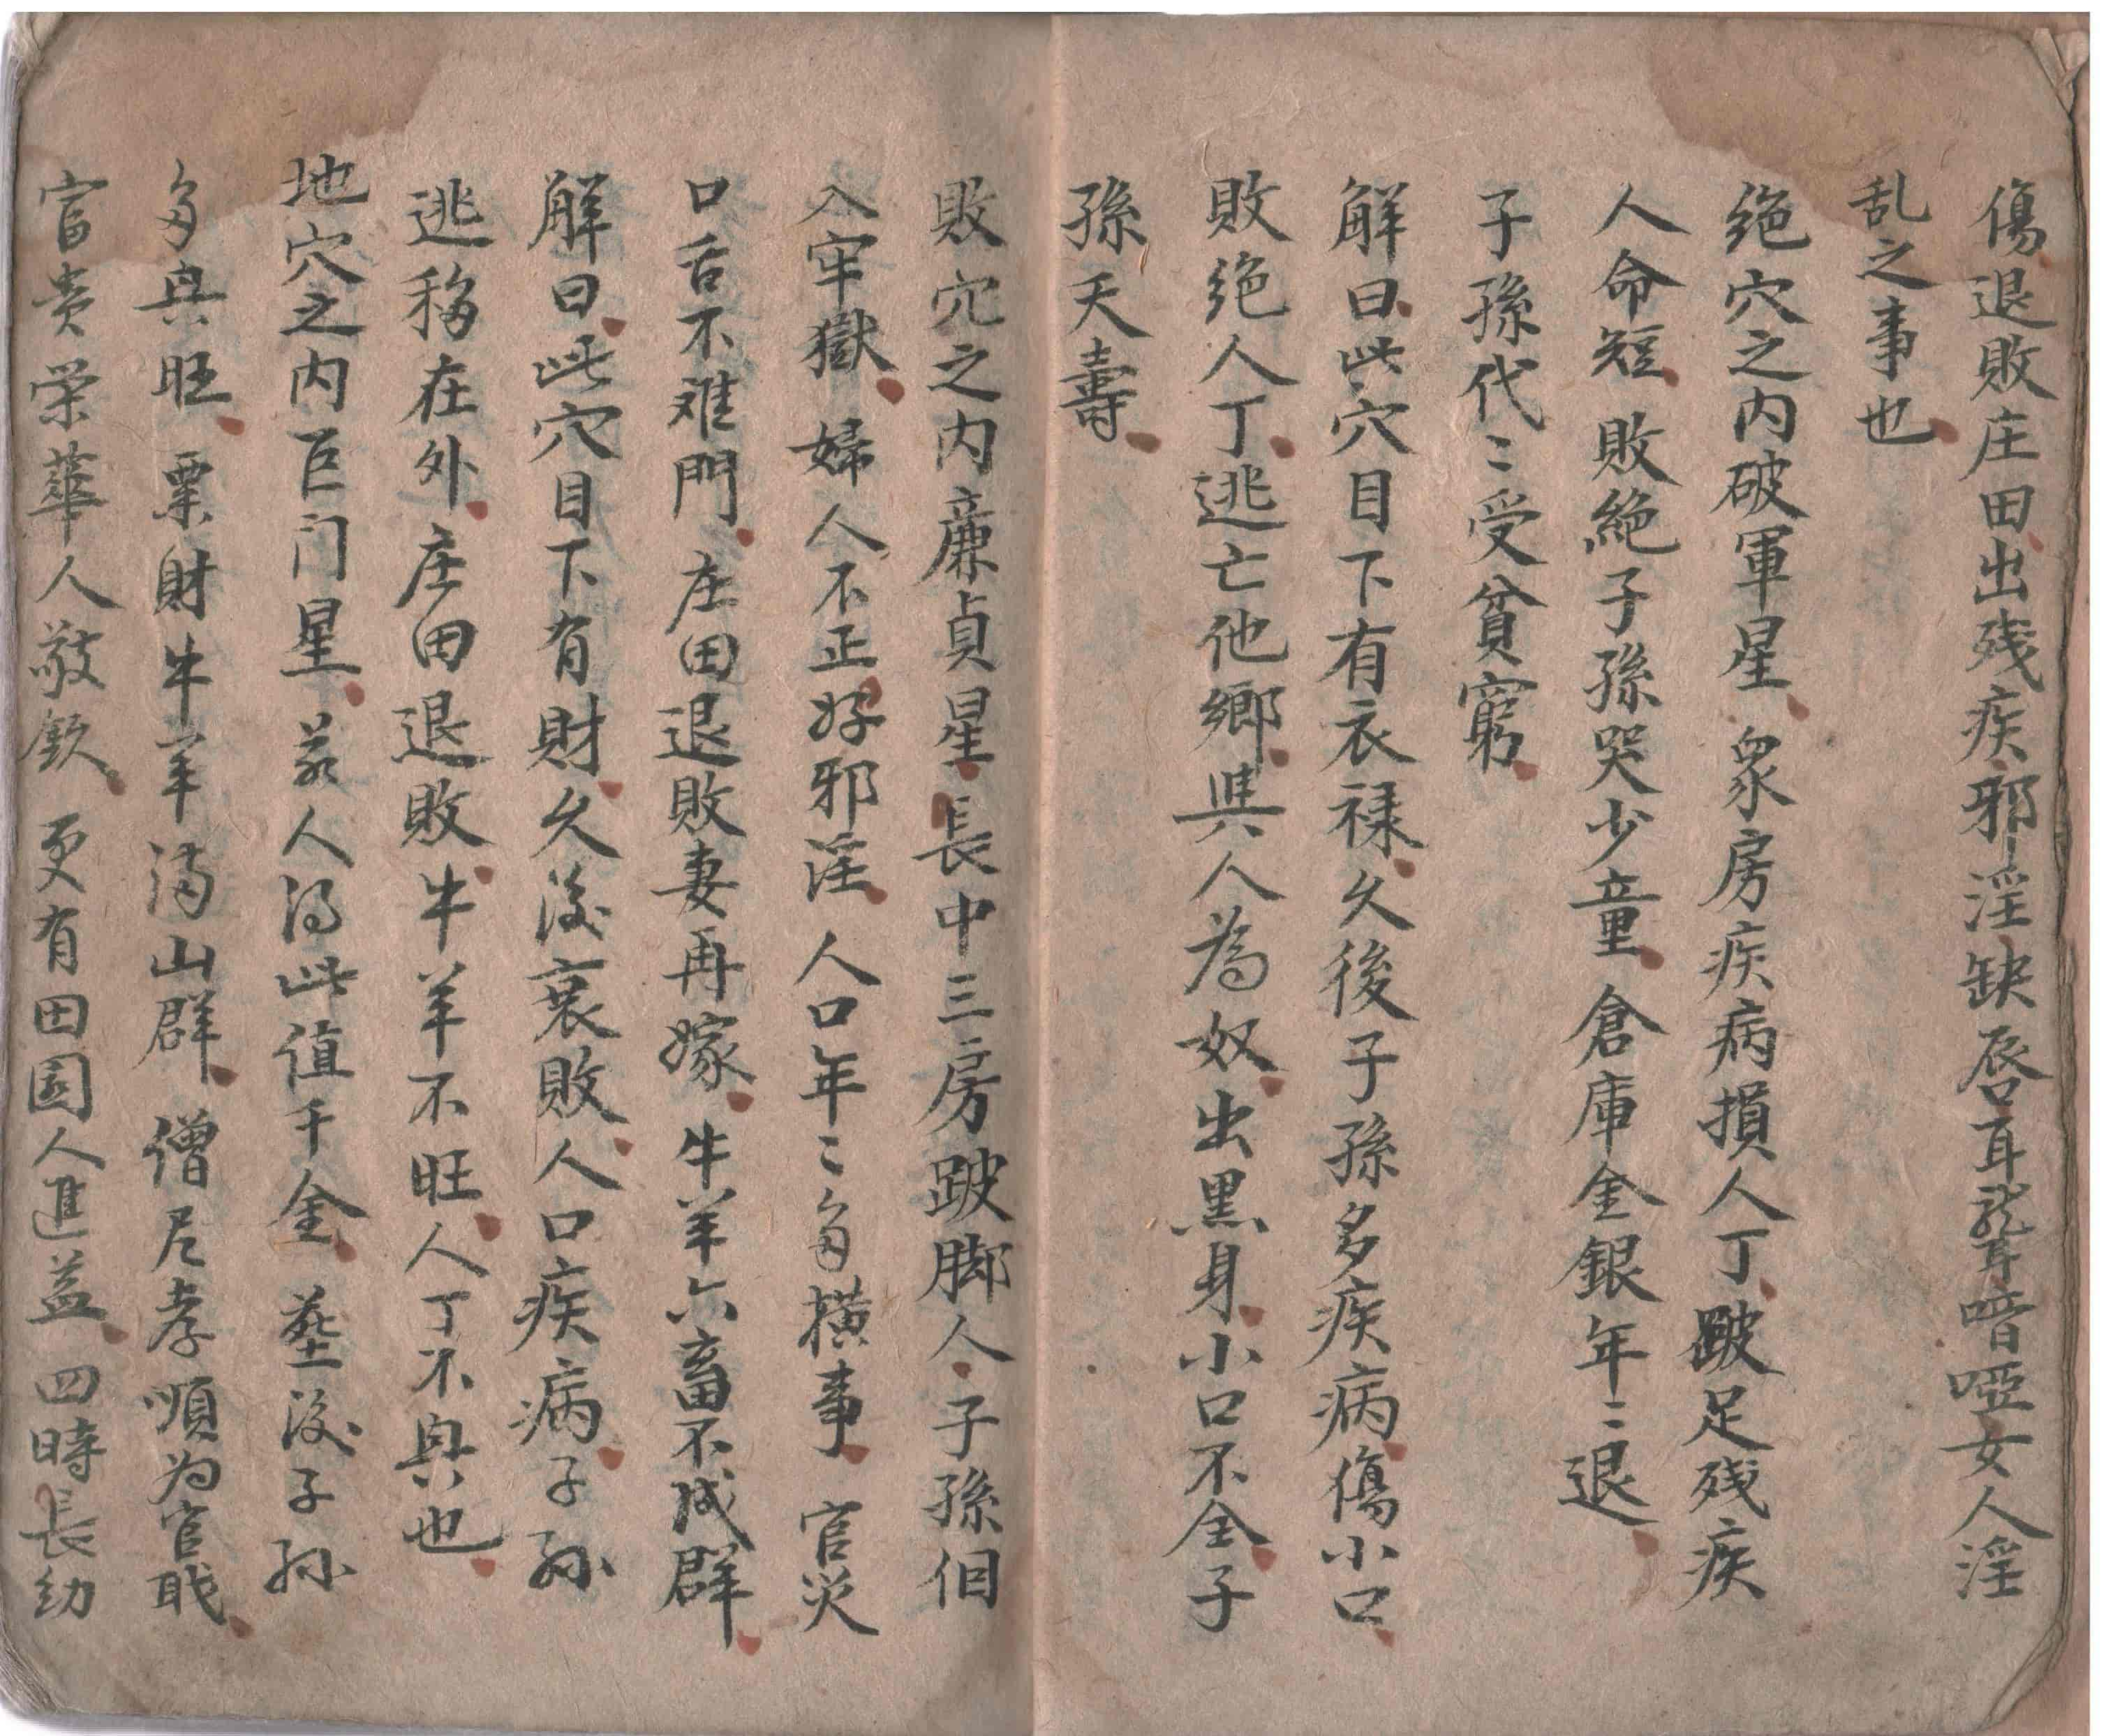 傷退敗庄田出残疾邪淫缺唇耳聾喑啞女人淫
乱之事也
绝穴之内破軍星眾房疾病損人丁跛足残疾
人命短敗絕子孫哭少童倉庫金銀年〻退
子孫代〻受貧窮
解曰此穴目下有衣禄久後子孫多疾病傷小口
敗绝人丁逃亡他鄉與人為奴出黑身小口不全子
孫夭壽
敗穴之内亷貞星長中三房跛脚人子孫佀
入牢獄婦人不正好邪淫人口年〻多橫事官災
口舌不难門庄田退敗妻再嫁牛羊六畜不成群
解曰此穴目下有財久後衰敗人口疾病子孙
逃移在外庄田退敗牛羊不旺人丁不興也
地穴之内巨门星若人得此值千金塟後子孙
多興旺票財牛羊满山群僧尼孝順为官戝
富贵荣華人敬欽更有田园人進益四時長幼